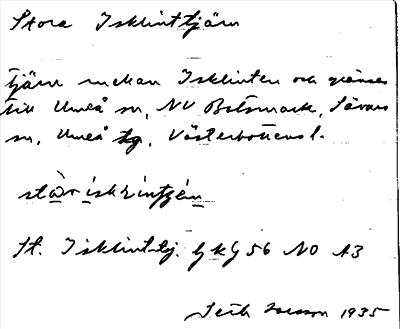 Stora Isklinttjärn
tjärn mellan Isklinten och gränsen
till Umeå sn, NV Botsmark, Sävars
sn, Umeå tg, Västerbottens l.
St. Isklinttj. GKG 56 NO A3
1935